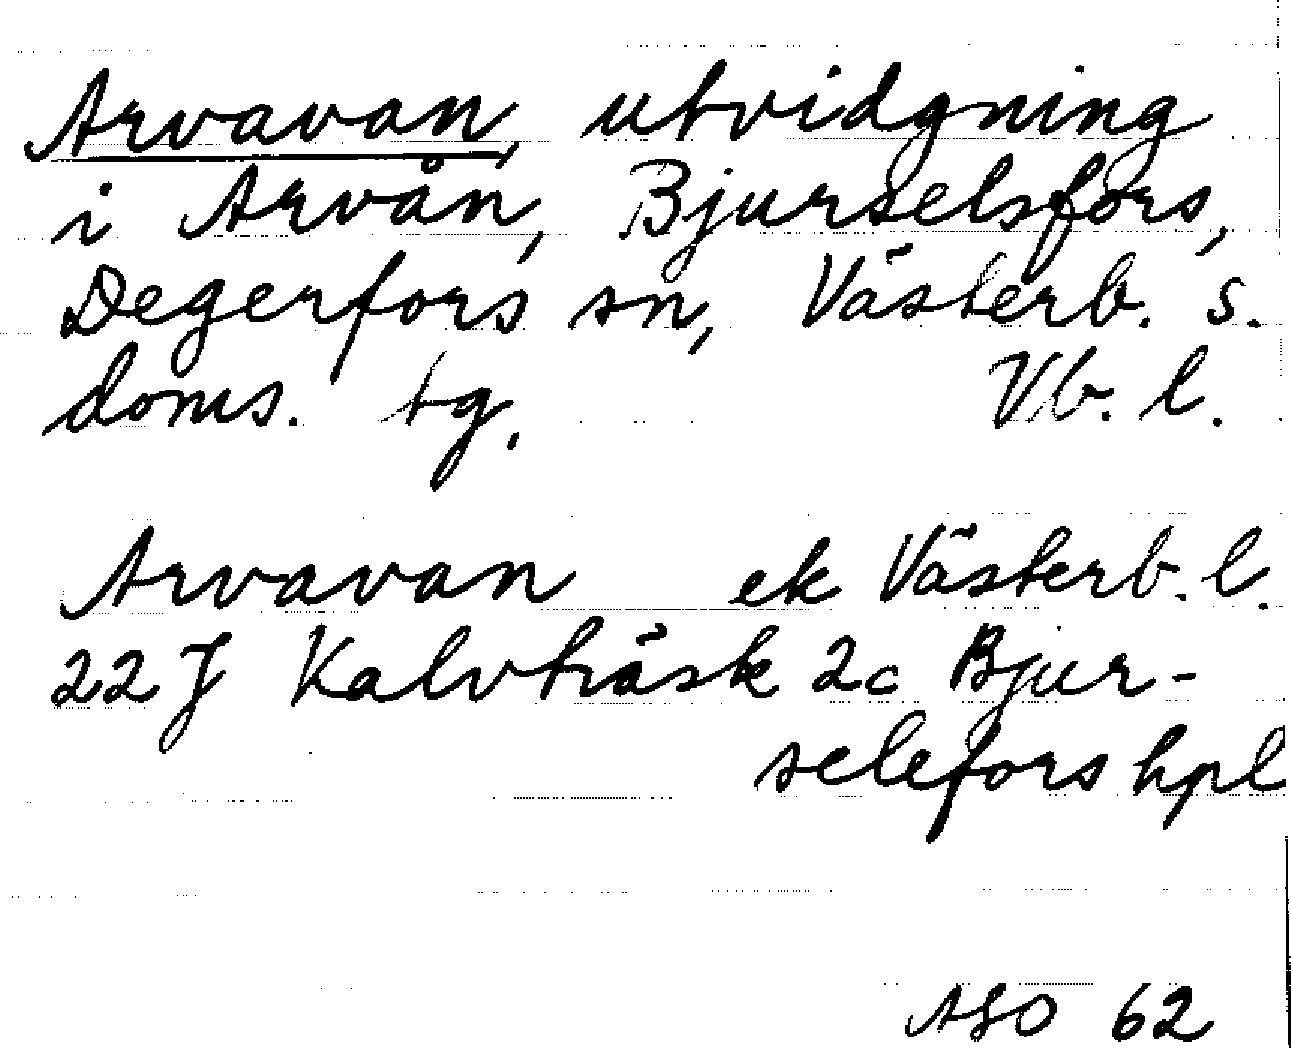 Arvavan, utvidgning
i Arvån, Bjurselsfors,
Degerfors sn, Västerb. s.
doms. tg. Vb. l.
Arvavan ek Västerb. l.
22 J Kalvträsk 2c Bjur-
selefors hpl
ASO 62